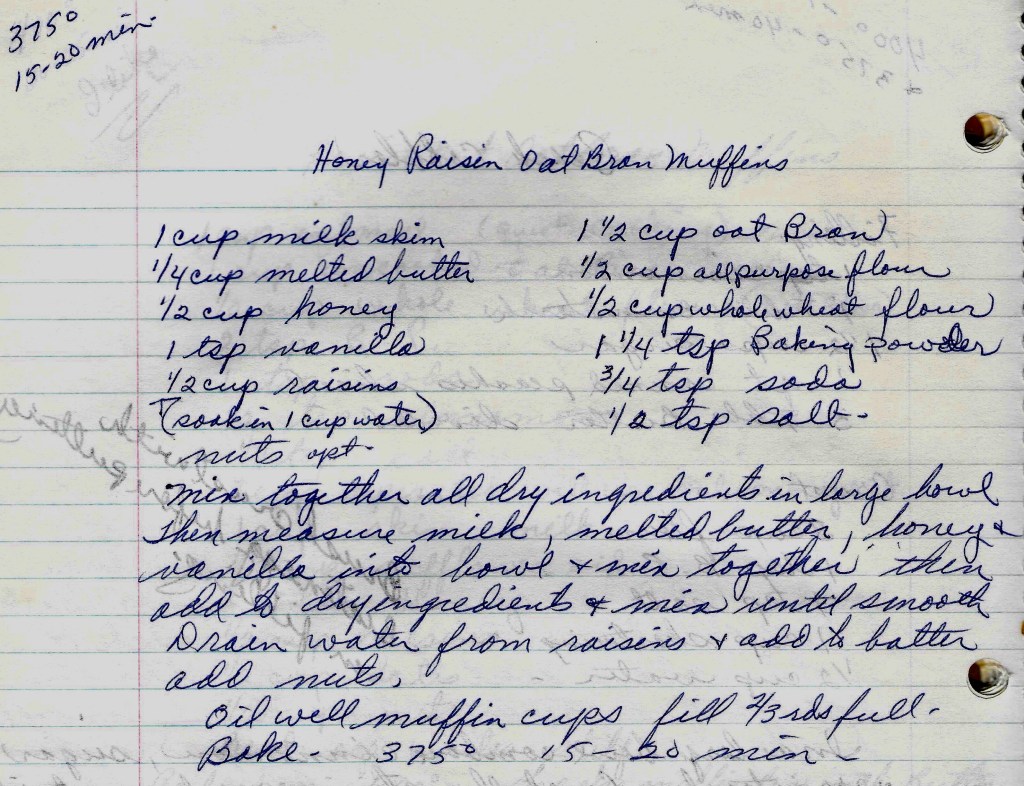 375°
15-20 min.
Honey Raisin Oat Bran Muffins
1 cup milk skim
1/4 cup melted butter
1/2 cup honey
1 tsp vanilla
1/2 cup raisins
(soak in 1 cup water)
nuts opt.
1 1/2 cup oat Bran
1/2 cup allpurpose flour
1/2 cup whole wheat flour
1 1/4 tsp Baking powder
3/4 tsp soda
1/2 tsp salt.
Mix together all dry ingredients in large bowl
Then measure milk, melted butter, honey &
vanilla into bowl & mix together then
add to dry ingredients & mix until smooth
Drain water from raisins & add to batter
add nuts.
Oil well muffin cups fill 2/3rds full.
Bake - 375° 15-20 min -